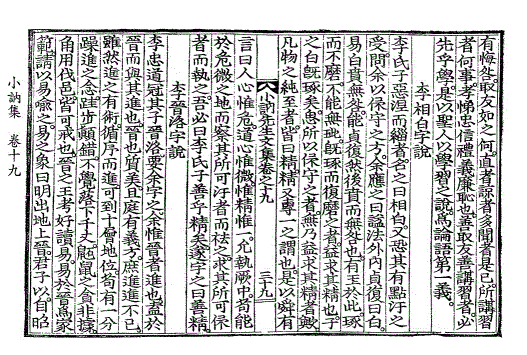 有悔咎。取友如之何。直者諒者多聞者是已。所講習
者何事。孝悌忠信禮義廉恥也。善取友善講習者。必
先乎學。是以聖人以學習之說。爲論語第一義。
李相白字說
李氏子惡涅而緇者。名之曰相白。又恐其有點汙之
受。問余以保守之方。余應之曰。謚法外內貞復曰白。
易白賁無咎。能貞復然後賁而無咎也。有玉於此琢
而不磨。不能無玼。旣琢而復磨之者。益求其精也。子
之白旣琢矣。思所以保守之者。無乃益求其精者歟。
凡物之純至者。皆曰精。精又專一之謂也。是以舜有
小訥先生文集卷之十九 三十九
言曰人心惟危。道心惟微。惟精惟一。允執厥中。苟能
於危微之地而察其所可汙者而祛之。求其所可保
者而執之。吾必曰李氏子善乎精矣。遂字之曰善精。
李晉洛字說
李忠道冠其子晉洛。要余字之。余惟晉者進也。盍於
晉而與其進也。晉也質美。且庭有義方。庶進進不已。
雖然進之有術。循序而進。可到十層地位。苟有一分
躁進之念。跬步顚錯。不覺落下十丈。鼫鼠之貪非據。
角用伐邑。皆可戒也。晉之王考。好讀易。易於晉爲家
範。請以易喩之。易之象曰。明出地上晉。君子以。自昭
小訥集 卷十九